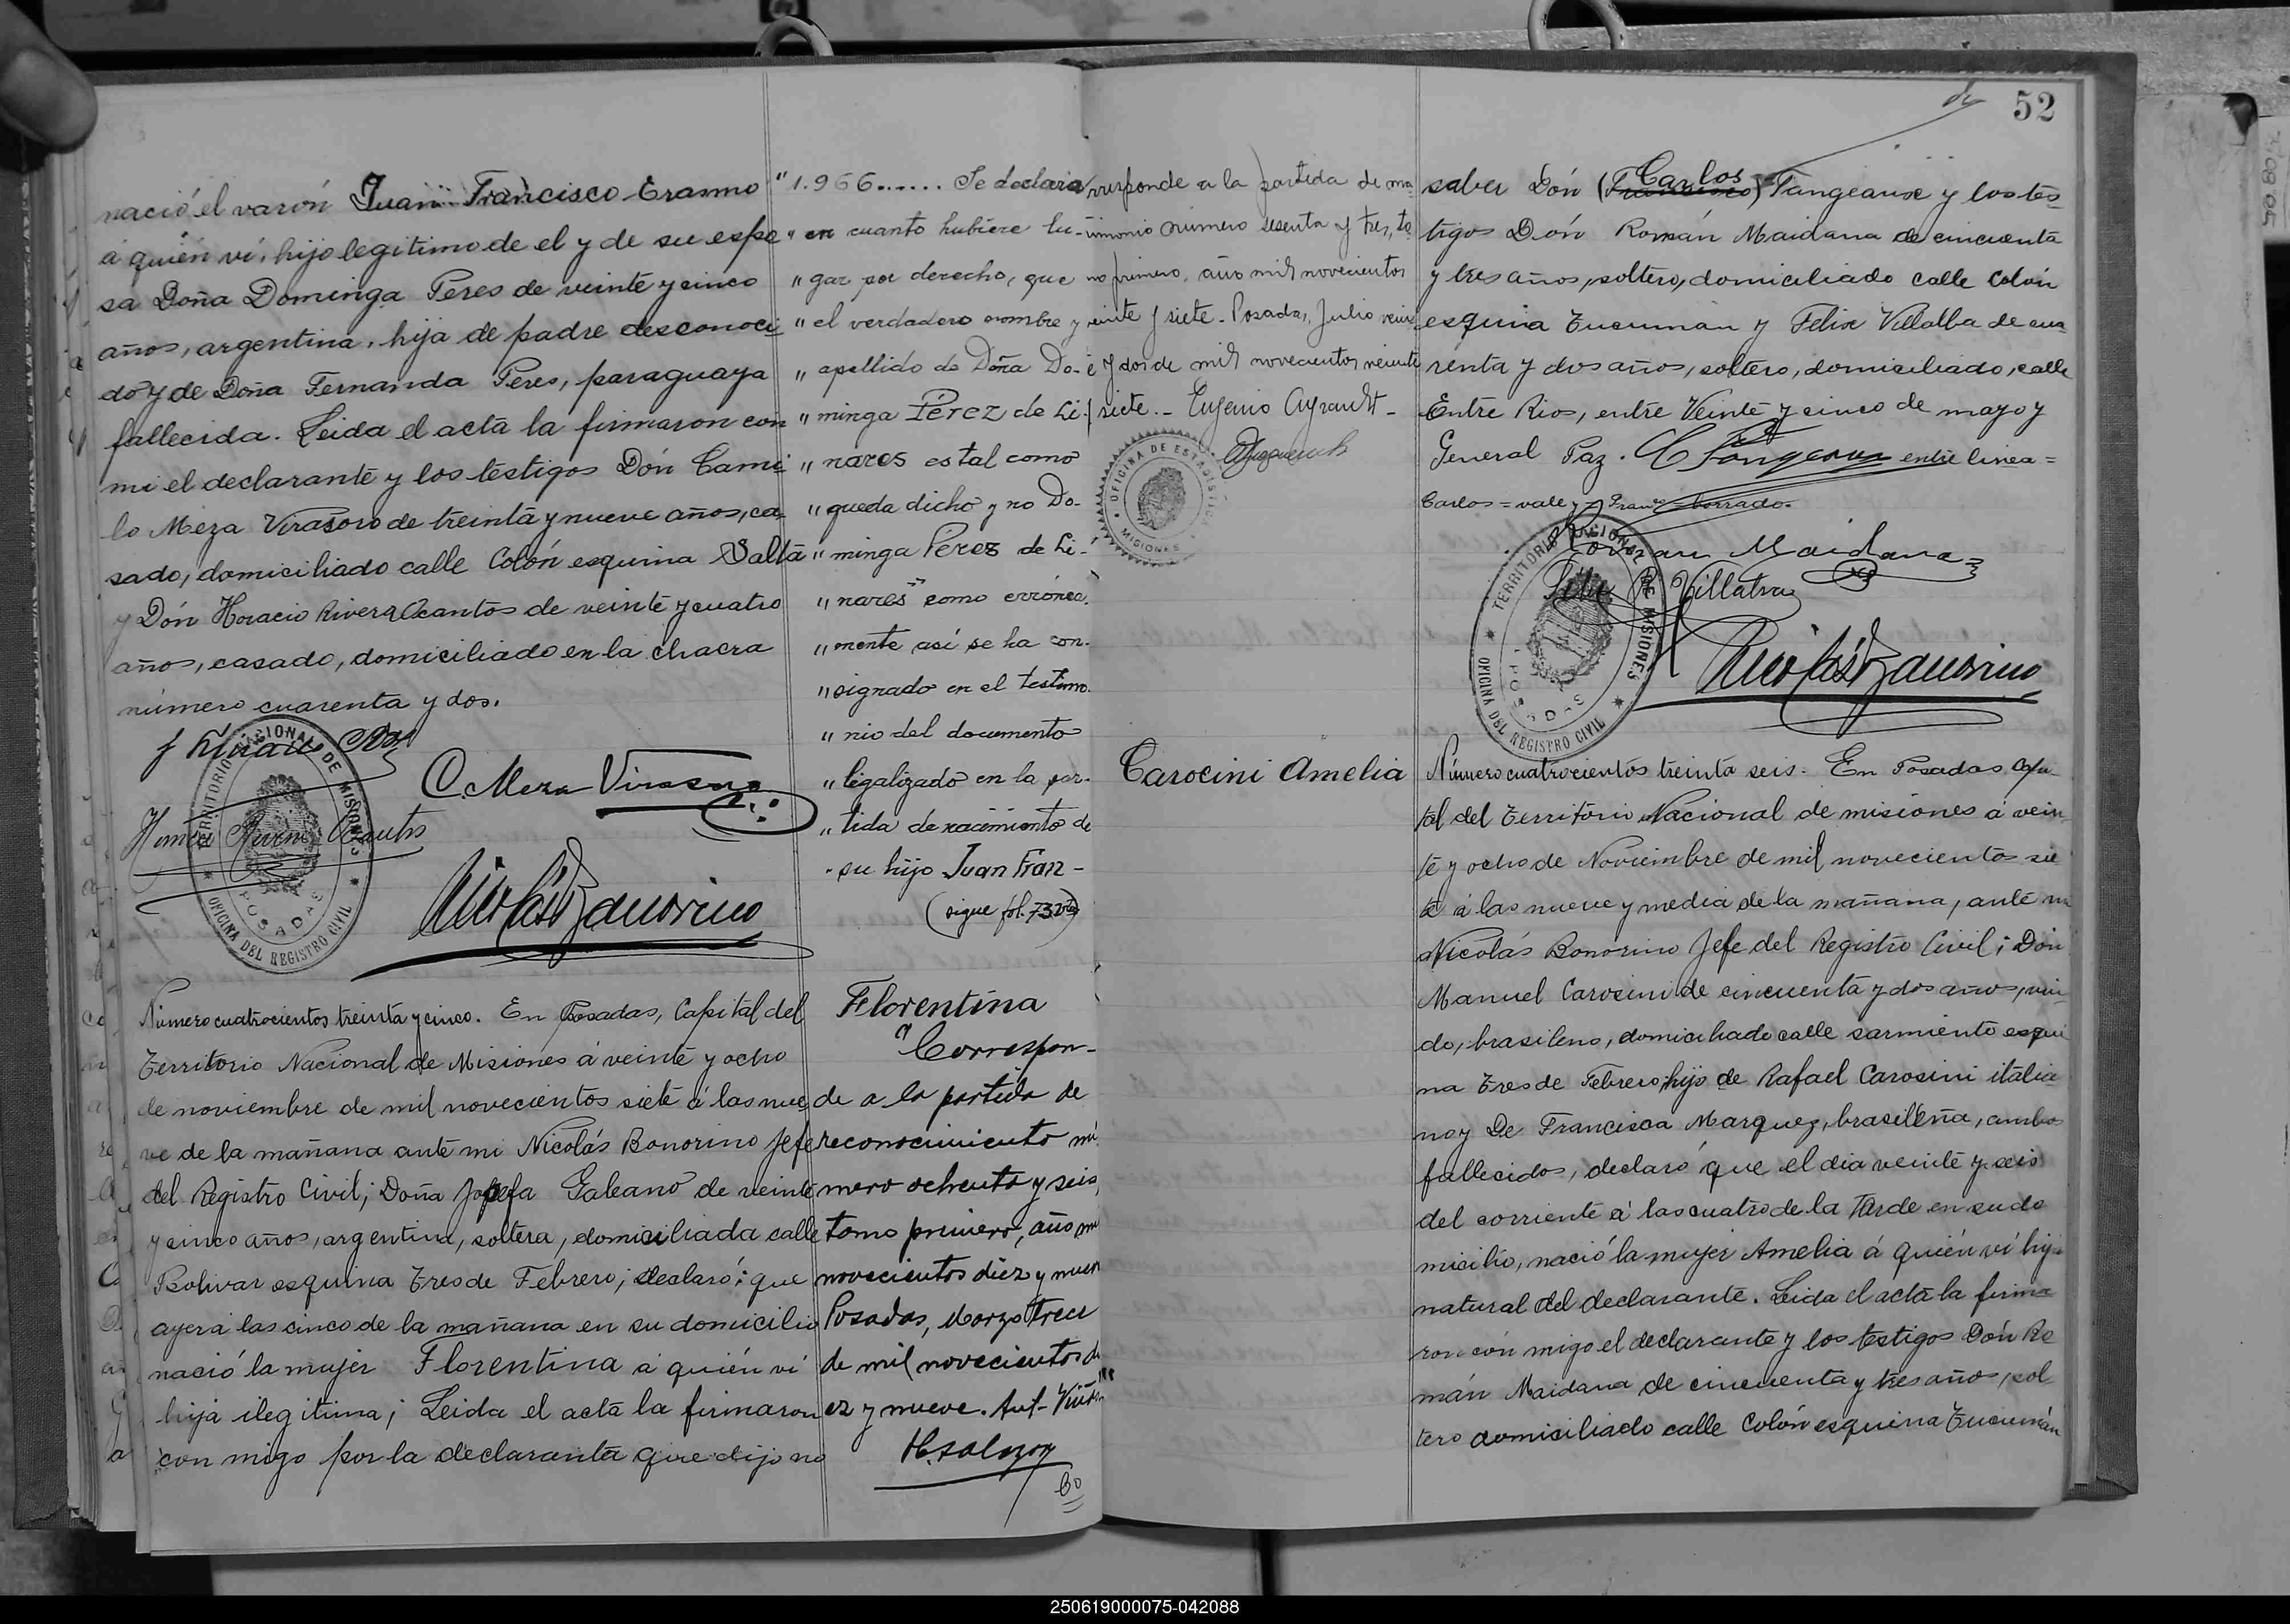 nació el varón Juan Francisco Erasmo
á quién ví, hijo legitimo de el y de su espo
sa Doña Dominga Peres de veinte y cinco
años, argentina, hija de padre desconoci
do y de Doña Fernanda Peres, paraguaya
fallecida. Leida el acta la firmaron con
mi el declarante y los testigos Dón Cami
lo Meza Virasoro de treinta y nueve años, ca
sado, domiciliado calle Colón esquina Salta
y Dón Horacio Rivera Ocantos de veinte y cuatro
años, casado, domiciliado en la chacra
número cuarenta y dos.
C. Meza Virasoro
TERRITORIO NACIONAL DE MISIONES
POSADAS
OFICINA DEL REGISTRO CIVIL
Nicolás Bonorino
Número cuatrocientos treinta y cinco. En Posadas, Capital del
Territorio Nacional de Misiones á veinte y ocho
de noviembre de mil novecientos siete á las nue
ve de la mañana ante mi Nicolás Bonorino Jefe
del Registro Civil; Doña Josefa Galeano de veinte
y cinco años, argentina, soltera, domiciliada calle
Bolivar esquina Tres de Febrero; declaró: que
ayer á las cinco de la mañana en su domicilio
nació la mujer Florentina á quién ví
hija ilegitima; Leida el acta la firmaron
con migo por la declaranta que dijo no
"1.966...... Se declara
" en cuanto hubiere lu-
" gar por derecho, que
" el verdadero nombre y
" apellido de Doña Do-
" minga Pérez de Li-
" nares es tal como
" queda dicho y no Do-
" minga Perez de Li-
" nares" como errónea
" mente así se ha con-
" signado en el testimo
" nio del documento
" legalizado en la par-
" tida de nacimiento de
" su hijo Juan Fran-
(sigue fol. 73 vta)
Florentina
Correspon-
de a la partida de
reconocimiento nú
mero ochenta y seis,
tomo primero, año mil
novecientos diez y nueve
Posadas, Marzo trece
de mil novecientos di
ez y nueve.
52
rresponde a la partida de ma
trimonio número sesenta y tres, to
mo primero, año mil novecientos
veinte y siete. Posadas, Julio vein
te y dos de mil novecientos veinte
y siete. - Eugenio Ayrault -
OFICINA DE ESTADISTICA
MISIONES
saber Dón (Francisco) Carlos Fangeaux y los tes
tigos Dón Román Maidana de cincuenta
y tres años, soltero, domiciliado calle Colón
esquina Tucumán y Felix Villalba de cua
renta y dos años, soltero, domiciliado, calle
Entre Rios, entre Veinte y cinco de mayo y
General Paz. entre linea =
Carlos = vale y = Fran.co borrado.
Román Maidana
Felix Villalba
TERRITORIO NACIONAL DE MISIONES
POSADAS
OFICINA DEL REGISTRO CIVIL
Nicolás Bonorino
Carocini Amelia
Número cuatrocientos treinta seis. En Posadas Capi
tal del Territorio Nacional de misiones á vein
te y ocho de Noviembre de mil novecientos sie
te á las nueve y media de la mañana, ante mi
Nicolás Bonorino Jefe del Registro Civil; Dón
Manuel Carosini de cincuenta y dos años, viu
do, brasileno, domiciliado calle sarmiento esqui
na Tres de Febrero, hijo de Rafael Carosini italia
no y De Francisca Marquez, brasileña, ambos
fallecidos, declaró que el dia veinte y seis
del corriente á las cuatro de la tarde en su do
micilio, nació la mujer Amelia á quién ví hija
natural del declarante. Leida el acta la firma
ron con migo el declarante y los testigos Dón Ro
mán Maidana de cincuenta y tres años, sol
tero domiciliado calle Colón esquina Tucumán
250619000075-042088